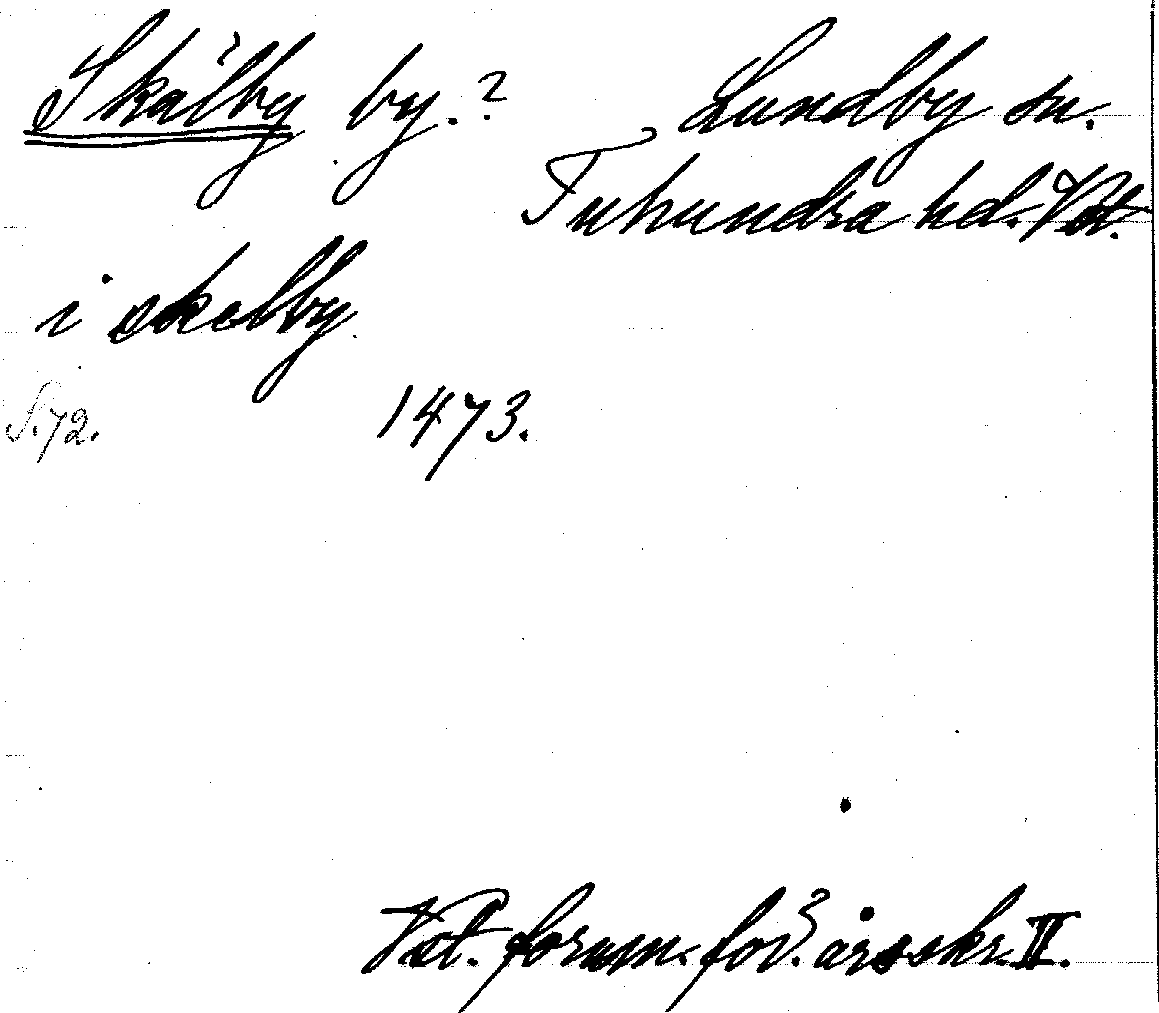 Skälby by.? Lundby sn.
Tuhundra hd. Vst.
i skelby
S. 72. 1473.
Vst. fornm. för. årsskr. II.